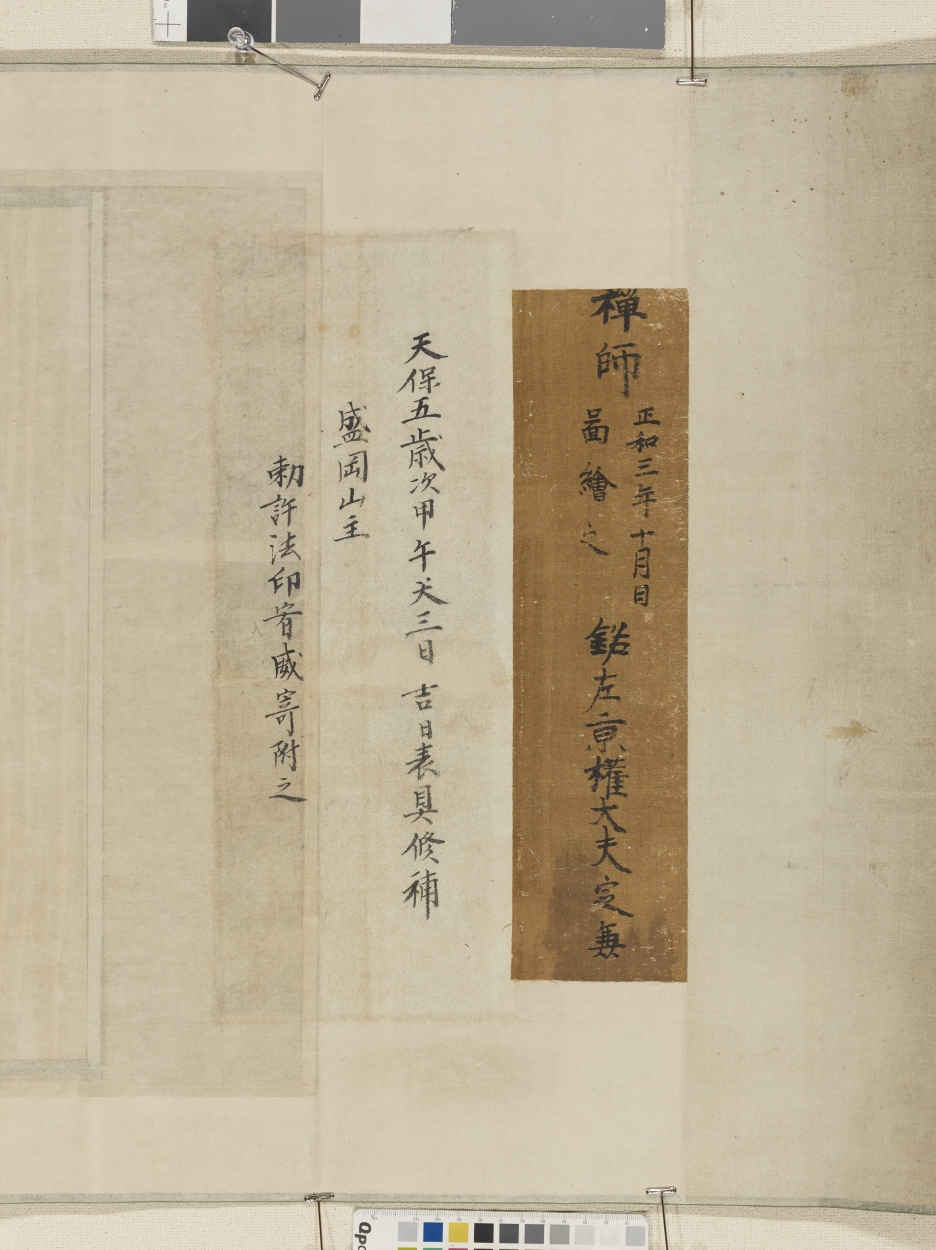 禅師
正和三年十月日
啚繪之
銘左亰權大夫定無
天保五歳次甲午天三日 吉日表具修補
盛岡山主
勅許法印宥威寄附之